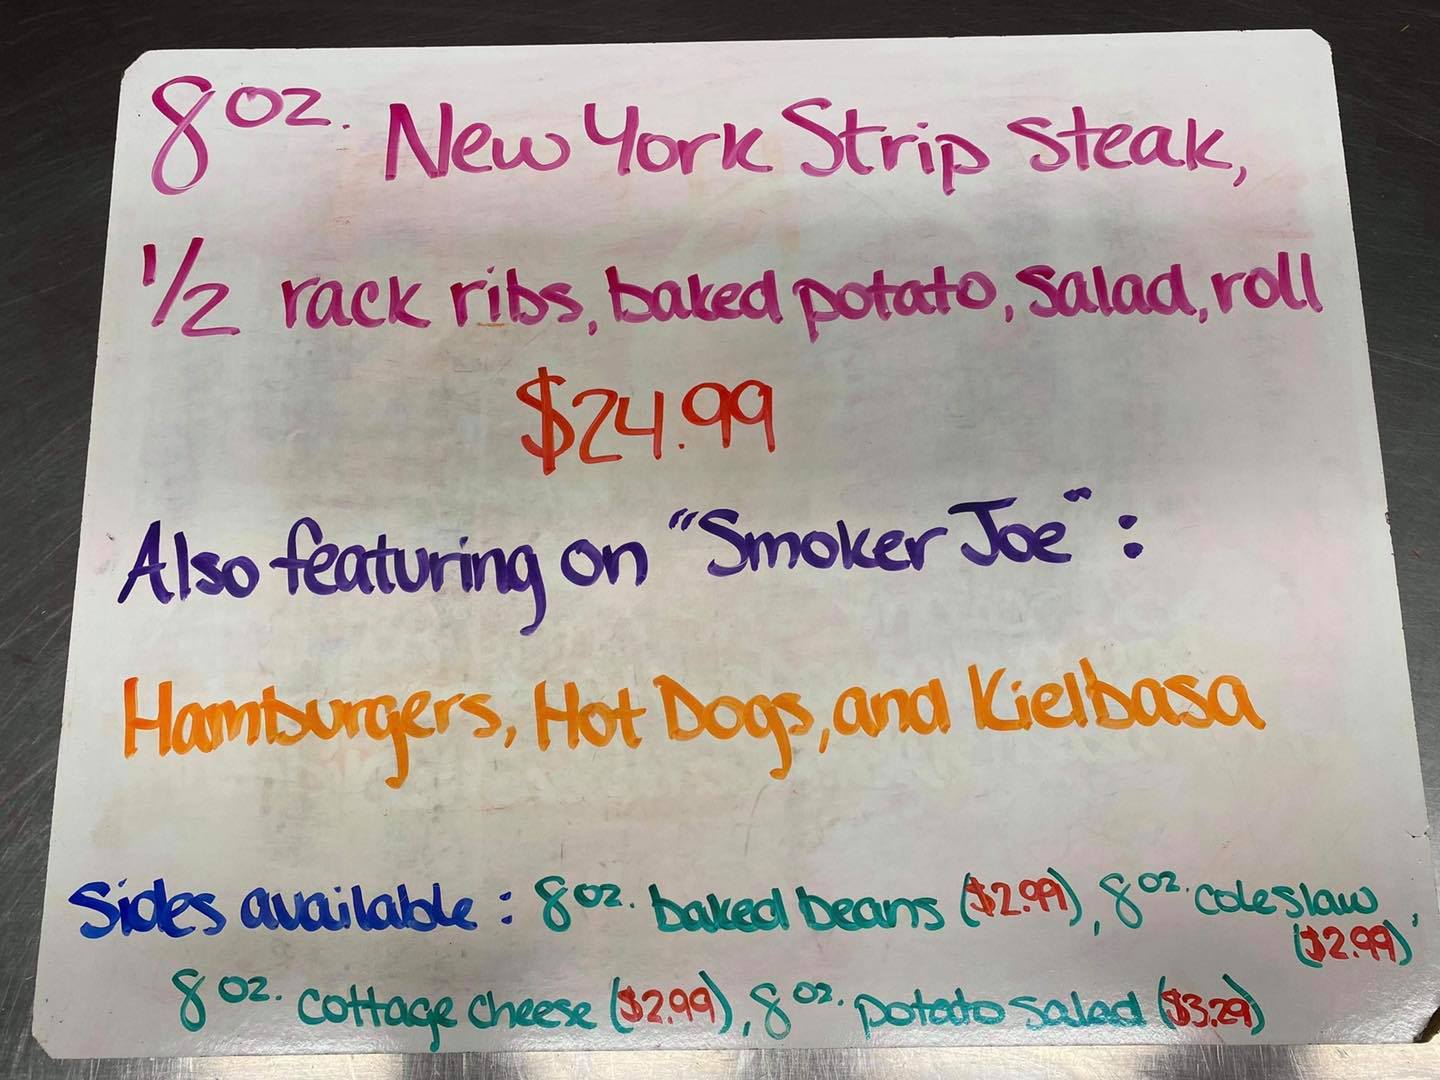 8 oz. New York Strip Steak,
1/2 rack ribs, baked potato, salad, roll
$24.99
Also featuring on "Smoker Joe":
Hamburgers, Hot Dogs, and Kielbasa
Sides available: 8 oz. baked beans ($2.99), 8 oz. coleslaw
($2.99),
8 oz. cottage cheese ($2.99), 8 oz. potato salad ($3.29)